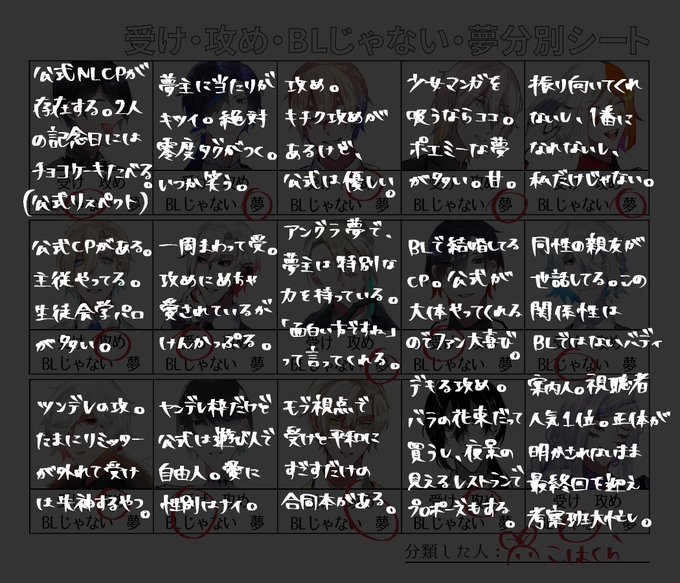 受け・攻め・BLじゃない・夢分別シート
公式NLCPが
存在する。2人
の記念日には
チョコケーキたべる。
(公式リスペクト)
受け 攻め
BLじゃない 夢
夢主に当たりが
キツイ。絶対
零度タグがつく。
いつか笑う。
受け 攻め
BLじゃない 夢
攻め。
キチク攻めが
あるけど、
公式は優しい。
受け 攻め
BLじゃない 夢
少女マンガを
吸うならココ。
ポエミーな夢
が多い。甘。
受け 攻め
BLじゃない 夢
振り向いてくれ
ないし、1番に
なれないし、
私だけじゃない。
受け 攻め
BLじゃない 夢
公式CPがある。
主従やってる。
生徒会学パロ
が多い。
受け 攻め
BLじゃない 夢
一周まわって受。
攻めにめちゃ
愛されているが
けんかっぷる。
受け 攻め
BLじゃない 夢
アングラ夢で、
夢主は特別な
力を持っている。
「面白い方ですね」
って言ってくれる。
BLじゃない 夢
BLで結婚してる
CP。公式が
大体やってくれる
のでファン大喜び。
BLじゃない 夢
同性の親友が
世話してる。この
関係性は
BLではないバディ
BLじゃない 夢
ツンデレの攻。
たまにリミッター
が外れて受け
は失神するやつ。
BLじゃない 夢
ヤンデレ枠だけど
公式は遊び人で
自由人。愛に
性別はナイ。
BLじゃない 夢
モブ視点で
受けと平和に
すごすだけの
合同本がある。
BLじゃない 夢
デキる攻め。
バラの花束だって
買うし、夜景の
見えるレストランで
プロポーズもする。
BLじゃない 夢
案内人。視聴者
人気1位。正体が
明かされないまま
最終回を迎え
考察班大忙し。
BLじゃない 夢
分類した人：こはくら